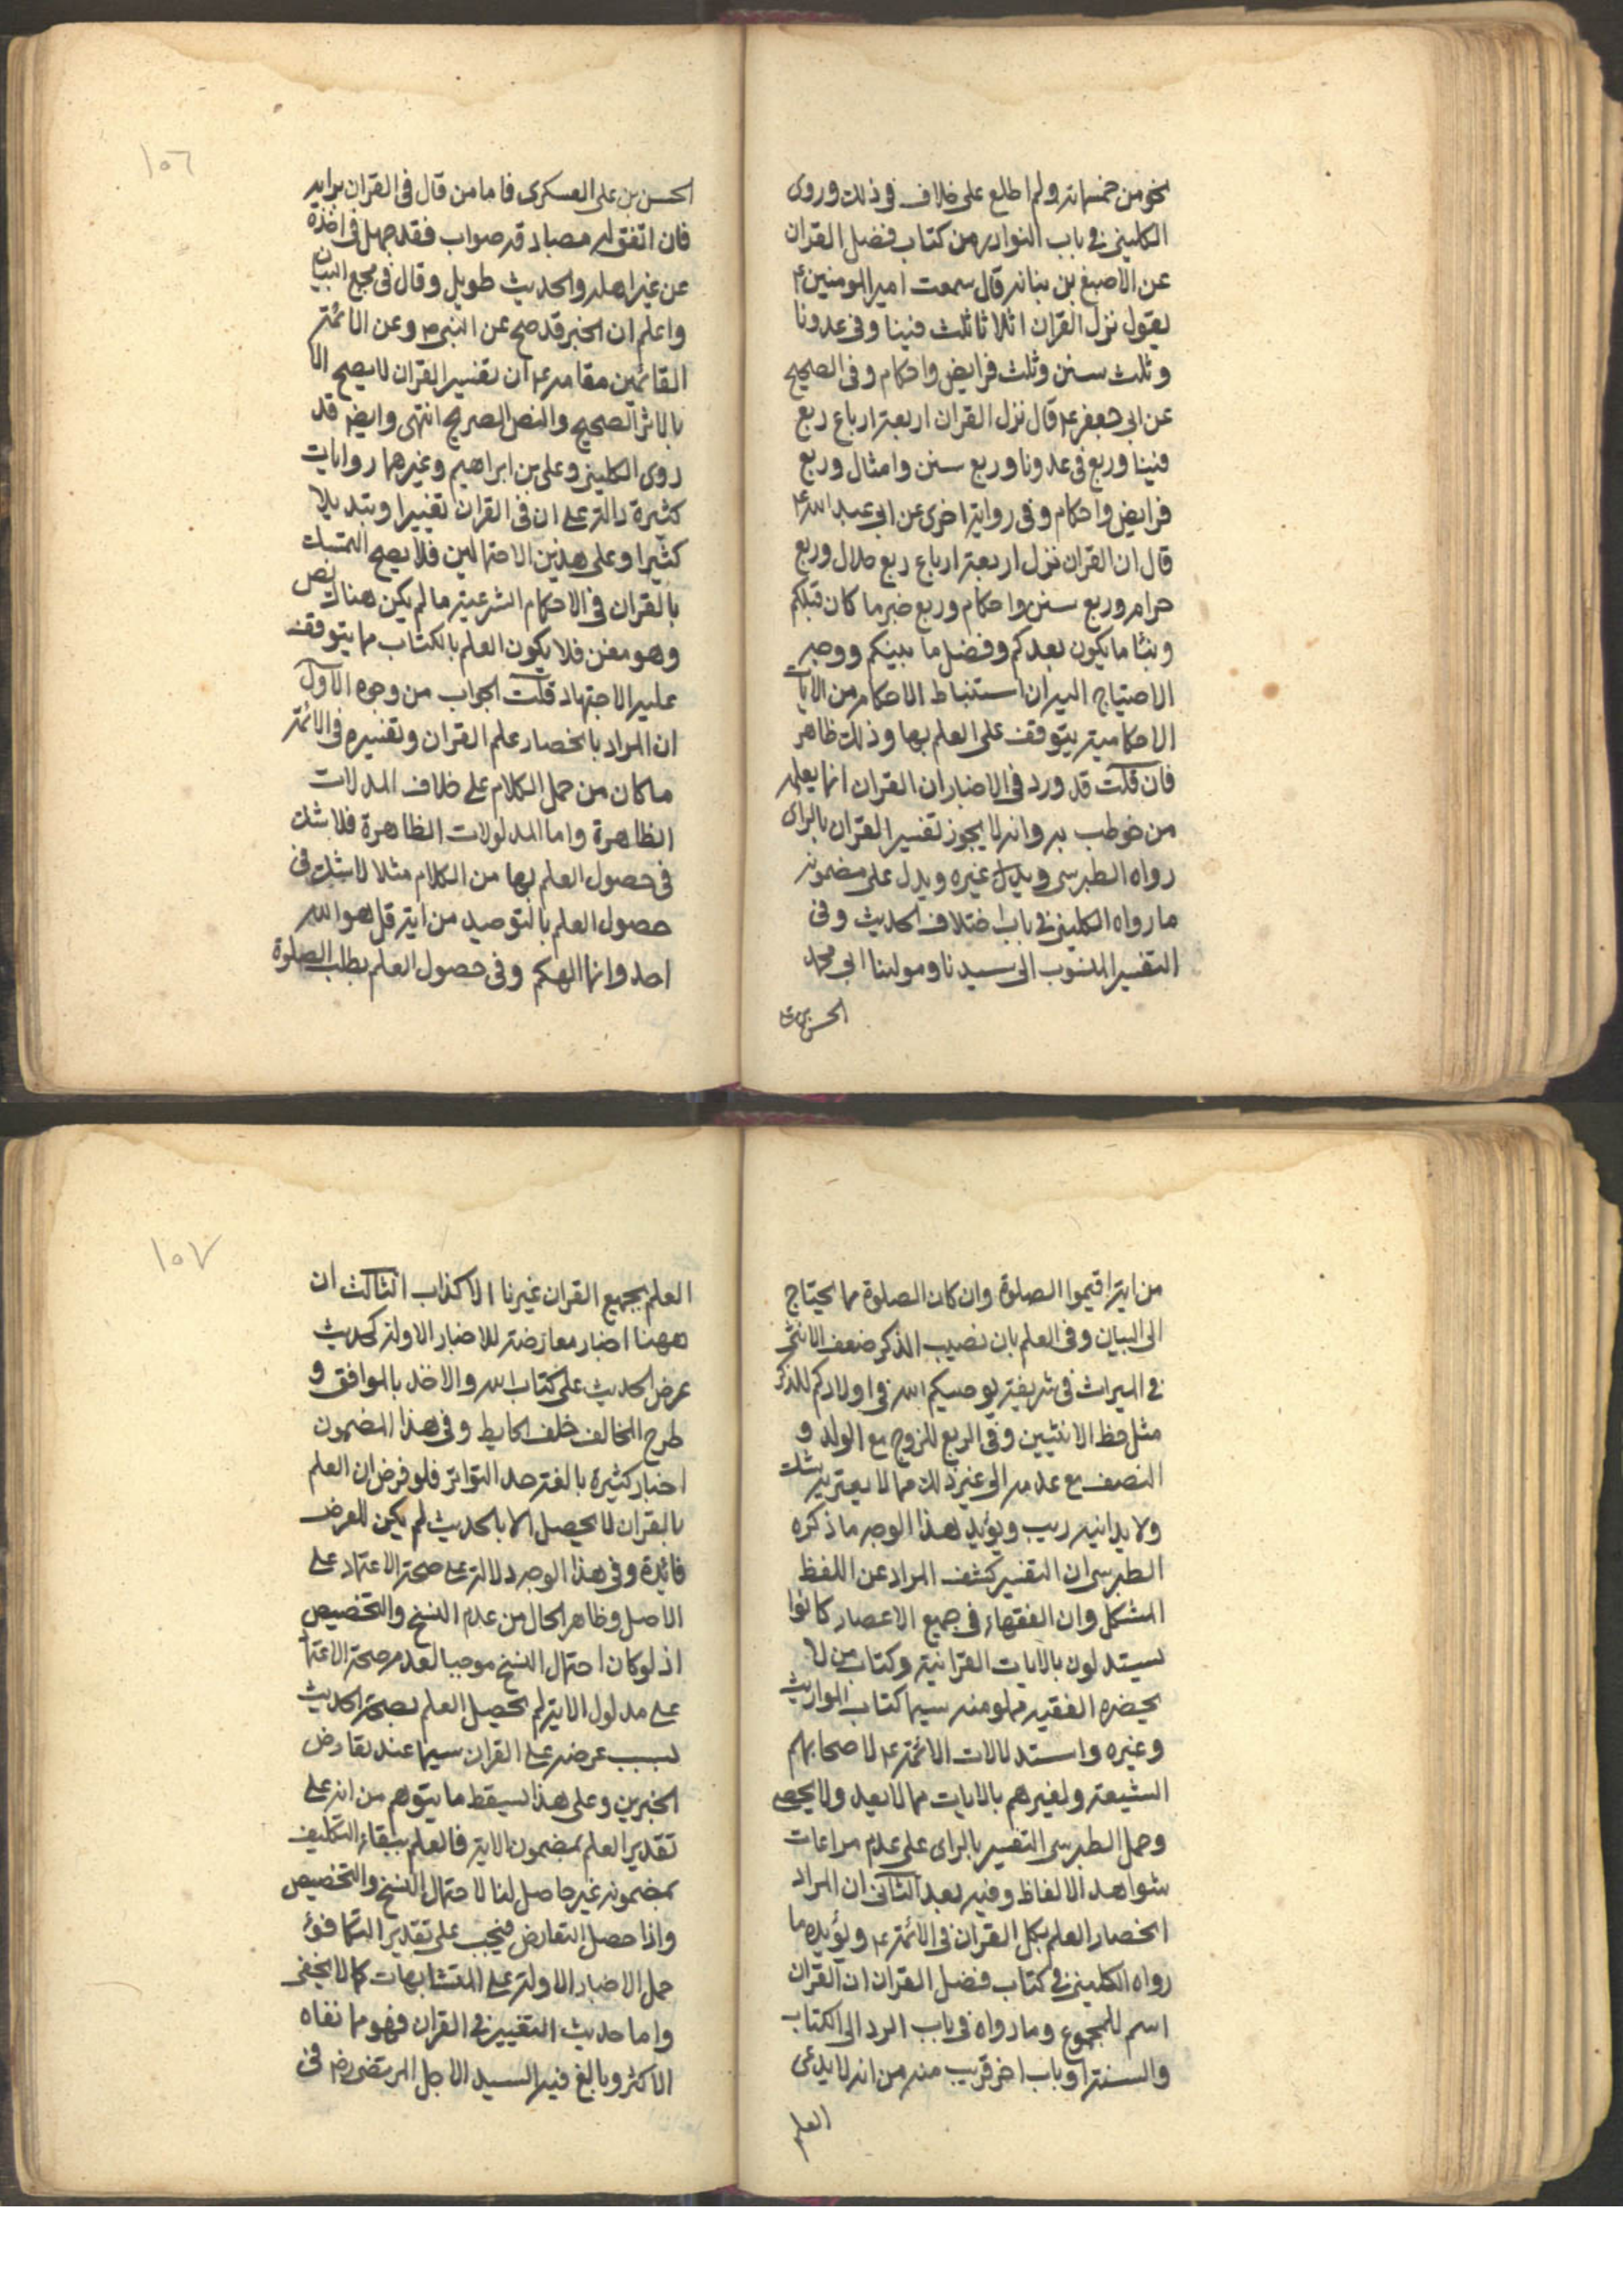 نحو من خمسمائة ولم اطلع على خلاف في ذلك وروى
الكليني في باب النوادر من كتاب فضل القران
عن الاصبغ بن نباته قال سمعت امير المومنين ع
يقول نزل القران اثلاثا ثلث فينا وفي عدونا
وثلث سنن وثلث فرايض واحكام وفي الصحيح
عن ابي جعفر ع قال نزل القران اربعة ارباع ربع
فينا وربع في عدونا وربع سنن وامثال وربع
فرايض واحكام وفي رواية اخرى عن ابي عبد الله ع
قال ان القران نزل اربعة ارباع ربع حلال وربع
حرام وربع سنن واحكام وربع خبر ما كان قبلكم
ونبأ ما يكون بعدكم وفصل ما بينكم ووجه
الاحتياج اليه ان استنباط الاحكام من الايات
الاحكامية يتوقف على العلم بها وذلك ظاهر
فان قلت قد ورد في الاخبار ان القران انما يعلمه
من خوطب به وانه لا يجوز تفسير القران بالراى
رواه الطبرسي و غيره ويدل على مضمونه
ما رواه الكليني في باب اختلاف الحديث وفي
التفسير المنسوب الى سيدنا ومولينا ابي محمد
الحسن بن ع
١٠٦
الحسن بن على العسكرى فاما من قال في القران برايه
فان اتفق له مصادقة صواب فقد جهل في اخذه
عن غير اهله والحديث طويل وقال في مجمع البيان
واعلم ان الخبر قد صح عن النبي ص وعن الائمة
القائمين مقامه ع ان تفسير القران لا يصح الا
بالاثر الصحيح والنص الصريح انتهى وايضا قد
روى الكليني وعلى بن ابراهيم وغيرهما روايات
كثيرة دالة على ان في القران تغييرا وتبديلا
كثيرا وعلى هذين الاحتمالين فلا يصح التمسك
بالقران في الاحكام الشرعية ما لم يكن هناك نص
وهو مغن فلا يكون العلم بالكتاب مما يتوقف
عليه الاجتهاد قلت الجواب من وجوه الاول
ان المراد بانحصار علم القران وتفسيره في الائمة
ما كان من حمل الكلام على خلاف المدلات
الظاهرة واما المدلولات الظاهرة فلا شك
في حصول العلم بها من الكلام مثلا لا شك في
حصول العلم بالتوحيد من اية قل هو الله
احد وانما الهكم وفي حصول العلم بطلب الصلوة
من اية اقيموا الصلوة وان كان الصلوة مما يحتاج
الى البيان وفي العلم بان نصيب الذكر ضعف الانثى
في الميراث في شريفة يوصيكم الله في اولادكم للذكر
مثل حظ الانثيين وفي الربع للزوج مع الولد و
النصف مع عدمه الى غير ذلك مما لا يعتريه شك
ولا يدانيه ريب ويؤيد هذا الوجه ما ذكره
الطبرسي ان التفسير كشف المراد عن اللفظ
المشكل وان الفقهاء في جميع الاعصار كانوا
يستدلون بالايات القرانية وكتاب من لا
يحضره الفقيه مملو منه سيما كتاب المواريث
وغيره واستدلالات الائمة ع لاصحابهم
الشيعة ولغيرهم بالايات مما لا يعد ولا يحصى
وحمل الطبرسي التفسير بالراى على عدم مراعات
شواهد الالفاظ وفيه بعد الثاني ان المراد
انحصار العلم بكل القران في الائمة ع ويؤيده ما
رواه الكليني في كتاب فضل القران ان القران
اسم للمجموع وما رواه في باب الرد الى الكتاب
والسنة او باب اخر قريب منه من انه لا يدعى
العلم
١٠٧
العلم بجميع القران غيرنا الا كذاب الثالث ان
ههنا اخبار معارضة للاخبار الاولة كحديث
عرض الحديث على كتاب الله والاخذ بالموافق و
طرح المخالف خلف الحايط وفي هذا المضمون
اخبار كثيرة بالغة حد التواتر فلو فرض ان العلم
بالقران لا يحصل الا بالحديث لم يكن للعرض
فائدة وفي هذا الوجه دلالة على صحة الاعتماد على
الاصل وظاهر الحال من عدم النسخ والتخصيص
اذ لو كان احتمال النسخ موجبا لعدم صحة الاعتما
على مدلول الاية لم يحصل العلم بصحة الحديث
بسبب عرضه على القران سيما عند تعارض
الخبرين وعلى هذا يسقط ما يتوهم من انه على
تقدير العلم بمضمون الاية فالعلم ببقاء التكليف
بمضمونه غير حاصل لنا لاحتمال النسخ والتخصيص
واذا حصل التعارض فيجب على تقدير التكافؤ
حمل الاخبار الاولة على المتشابهات كما لا يخفى
واما حديث التغيير في القران فهو مما نفاه
الاكثر وبالغ فيه السيد الاجل المرتضى رض في